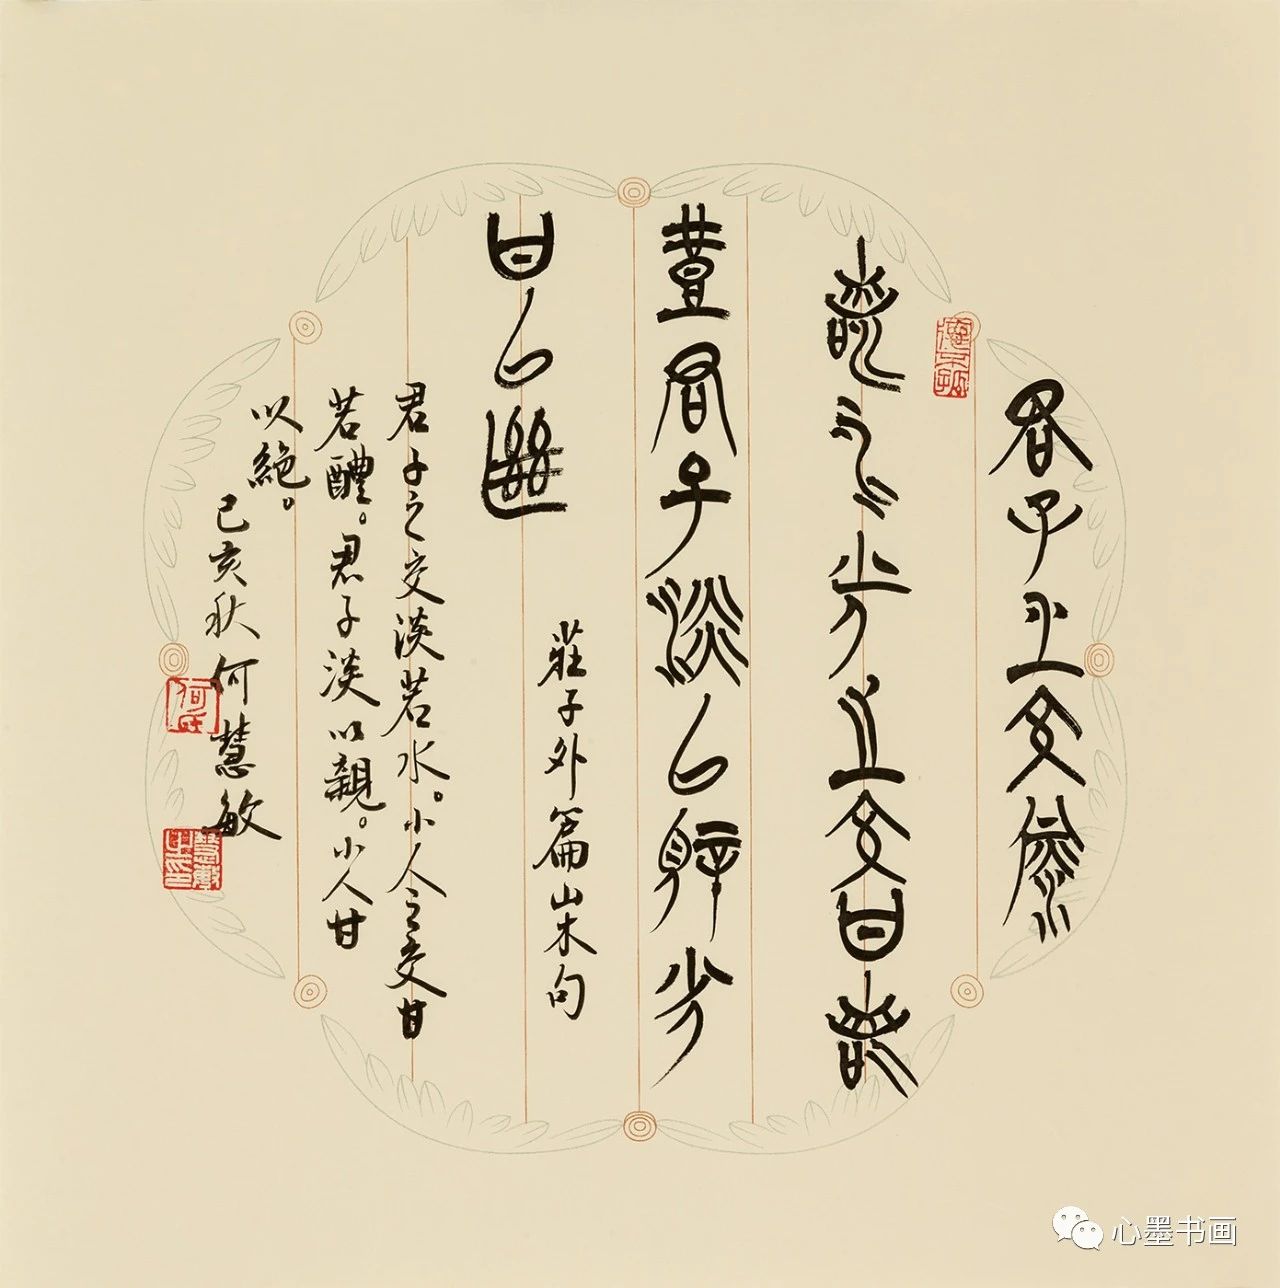 君子之交淡
若水小人之交甘若
醴君子淡以親小人
甘以絕
莊子外篇山木句
君子之交淡若水。小人之交甘
若醴。君子淡以親。小人甘
以絕。
己亥秋何慧敏
何氏
慧敏之印
德不孤
心墨书画